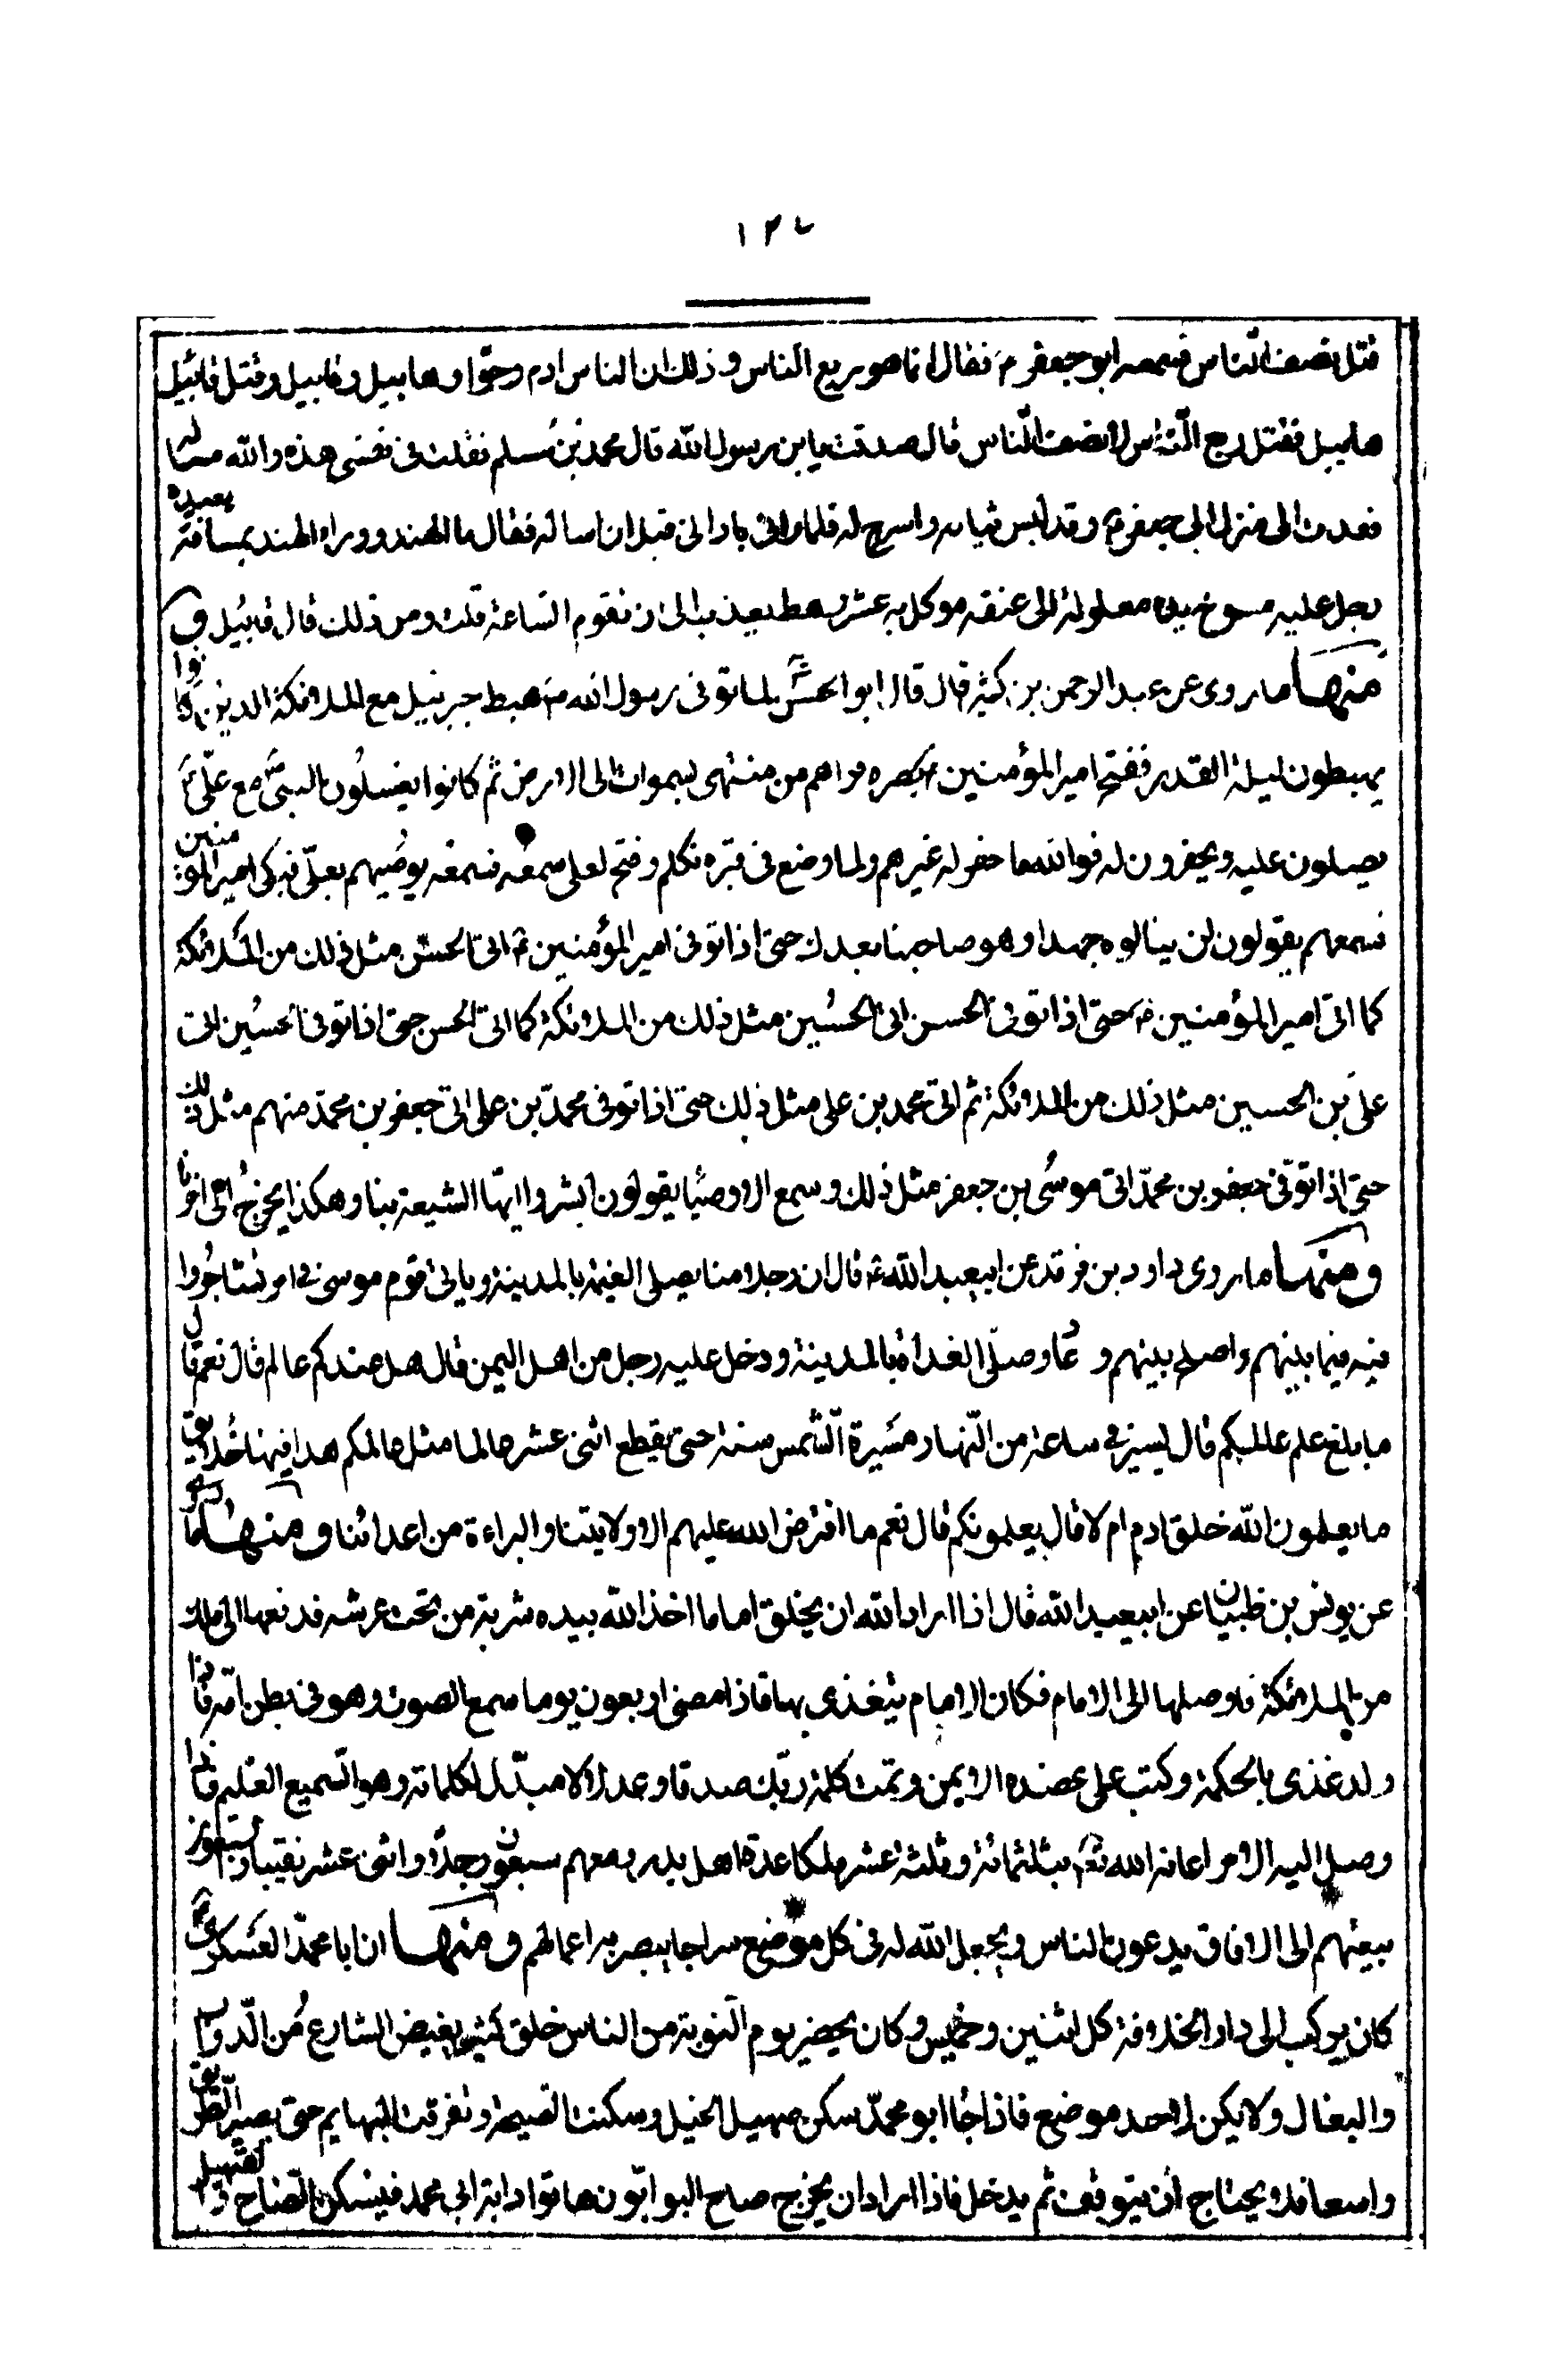 ١٣٧
قتل نصف الناس فسمعه ابو جعفر م فقال انما هو ربع الناس و ذلك ان الناس ادم و حوّا و هابيل و قابيل و قتل قابيل
هابيل فقتل ربع الناس لا نصف الناس قال صدقت يابن رسول الله قال محمد بن مسلم فقلت فى نفسى هذه والله مسالة
فعدت الى منزل ابى جعفر م و قد لبس ثيابه و اسرج له فلما رانى بادانى قبل ان اساله فقال ما الهند و وراء الهند بمسافة بعيدة
رجل عليه مسوخ يده مغلولة الى عنقه موكل به عشر رهط يعذب الى ان تقوم الساعة قلت و من ذلك قال قابيل و
منها ما روى عن عبد الرحمن بن كثير قال قال ابو الحسن لما توفى رسول الله ص هبط جبرئيل مع الملائكة الذين كانوا
يهبطون ليلة القدر ففتح امير المؤمنين م بصره فراهم من منتهى سموات الى الارض ثم كانوا يغسلون النبى ص مع على ع
يصلون عليه و يحفرون له فوالله ما حفر له غيرهم ولما وضع فى قبره تكلم و فتح لعلى سمعه فسمعه يوصيهم بعلى فبكى امير المؤمنين
فسمعهم يقولون لن ينالوه جهدا و هو صاحبنا بعدك حتى اذا توفى امير المؤمنين م اتى الحسن مثل ذلك من الملائكة
كما اتى امير المؤمنين م حتى اذا توفى الحسن اتى الحسين مثل ذلك من الملائكة كما اتى الحسن حتى اذا توفى الحسين اتى
على بن الحسين مثل ذلك من الملائكة ثم اتى محمد بن على مثل ذلك حتى اذا توفى محمد بن على اتى جعفر بن محمد منهم مثل ذلك
حتى اذا توفى جعفر بن محمد اتى موسى بن جعفر مثل ذلك و سمع الاوصيا يقولون ابشروا ايتها الشيعة بنا و هكذا يخرج الى اخرنا
و منها ما روى داود بن فرقد عن ابيعبد الله م قال ان رجلا منا يصلى العتمة بالمدينة و ياتى قوم موسى فى امر تشاجروا
فيه فيما بينهم و اصلح بينهم و عاد و صلى الغداة بالمدينة و دخل عليه رجل من اهل اليمن قال هل عندكم عالم قال نعم قال
ما بلغ علم عالمكم قال يسير فى ساعة من النهار مسيرة الشمس سنة حتى يقطع اثنى عشر عالما مثل عالمكم هذا فيها خلايق
ما يعلمون الله خلق ادم ام لا قال يعلمونكم قال نعم ما افترض الله عليهم الا ولايتنا و البراءة من اعدائنا و منها ما روى
عن يونس بن ظبيان عن ابيعبد الله قال اذا اراد الله ان يخلق اماما اخذ الله بيده شربة من تحت عرشه فدفعها الى ملك
من الملائكة فاوصلها الى الامام فكان الامام يتغذى بها فاذا مضى اربعون يوما سمع الصوت و هو فى بطن امه فاذا
ولد غذى بالحكمة و كتب على عضده الايمن و تمت كلمة ربك صدقا و عدلا لا مبدل لكلماته و هو السميع العليم فاذا
وصل اليه الامر اعانه الله بثلثمائة و ثلثة عشر ملكا عدة اهل بدر و معهم سبعون رجلا و اثنى عشر نقيبا
يبعثهم الى الافاق يدعون الناس و يجعل الله له فى كل موضع سراجا يبصر به اعمالهم و منها ان ابا محمد العسكرى
كان يركب الى دار الخلافة كل اثنين و خميس و كان يحضر يوم النوبة من الناس خلق كثير يغيض الشارع من الدواب
و البغال و لا يكن لاحد موضع فاذا جا ابو محمد سكن صهيل الخيل و سكنت الضيجة و تفرقت البهايم حتى يصير الطريق
واسعا فلا يحتاج ان يتوقف ثم يدخل فاذا اراد ان يخرج صاح البوابون هاتوا دابة ابى محمد فيسكن الصياح و الصهيل